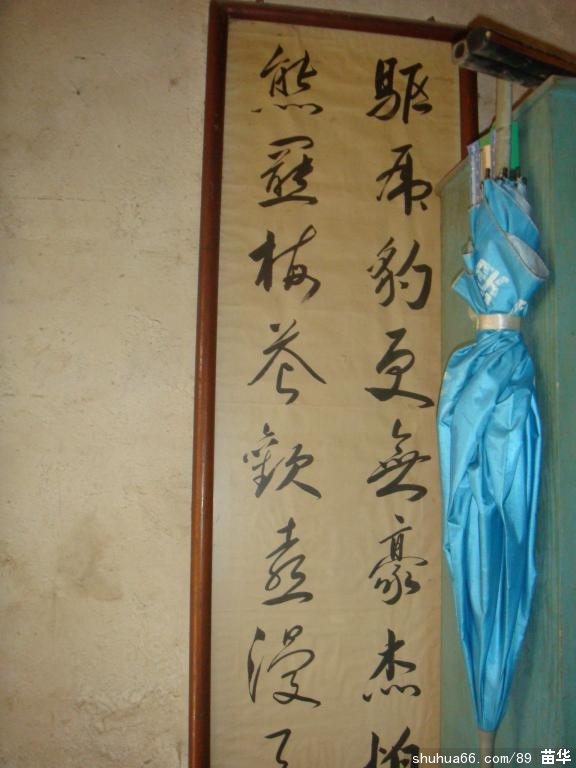 驅虎豹更無豪杰怕
熊羆梅花歡喜漫天
shuhua66.com/89 苗华